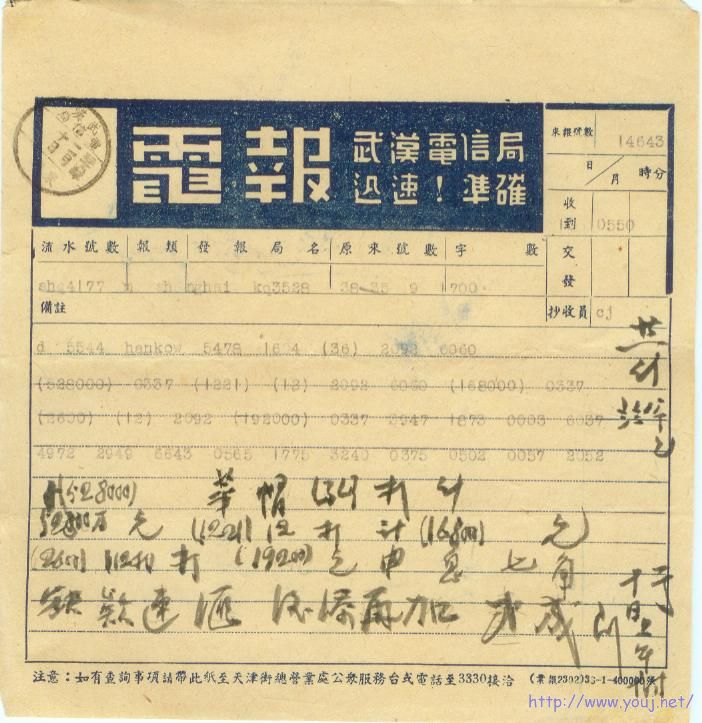 電報
武漢電信局
迅速！準確
來報號數 14643
日/月 時分
收到 0550
交發
抄收員 cj
流水號數 報類 發報局名 原來號數 字數
shg4177 m shanghai kq3528 38 35 9 1700
備註
d 5544 hankow 5478 1604 (36) 2092 6060
(528000) 0337 (1221) (12) 2092 6060 (168000) 0337
(2600) (12) 2092 (192000) 0337 3947 1873 0003 6037
4972 2949 6643 0565 1775 3240 0375 0502 0057 2052
(528000) 華帽 (36) 打 計
52800 元 (1221) 12 打 計 (16800) 元
(2600) (12) 打 (19200) 元 申息七角
款速匯 再加
注意：如有查詢事項請帶此紙至天津街總營業處公衆服務台或電話至3330接洽
(業報2302)38-1-400000張
http://www.youj.net/